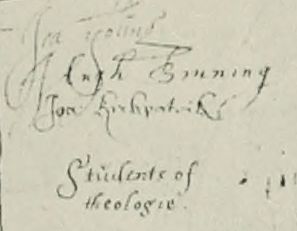 Joa Young
Hugh Binning
Joa Kirkpatrick
Students of
theologie.